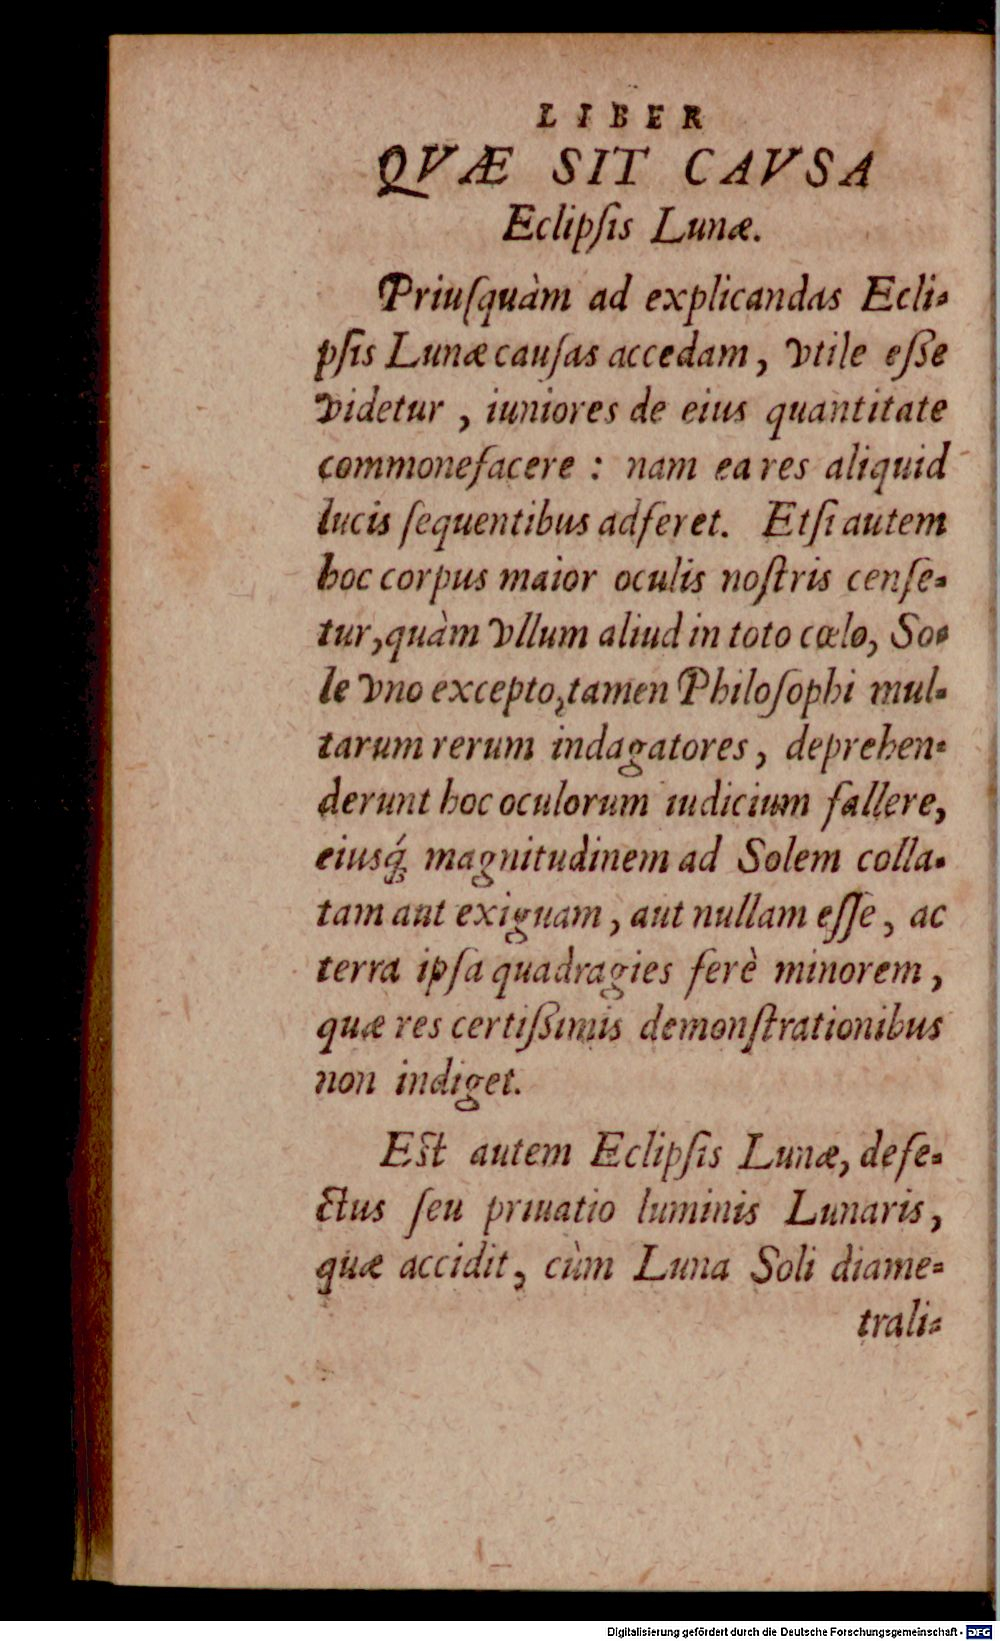 LIBER
QVÆ SIT CAVSA
Eclipſis Lunæ.
Priuſquàm ad explicandas Ecli-
pſis Lunæ cauſas accedam, vtile eße
videtur, iuniores de eius quantitate
commonefacere : nam ea res aliquid
lucis ſequentibus adferet. Etſi autem
hoc corpus maior oculis noſtris cenſe-
tur, quàm vllum aliud in toto cœlo, So-
le vno excepto, tamen Philoſophi mul-
tarum rerum indagatores, deprehen-
derunt hoc oculorum iudicium fallere,
eiusq́; magnitudinem ad Solem colla-
tam aut exiguam, aut nullam eſſe, ac
terra ipſa quadragies ferè minorem,
quæ res certißimis demonſtrationibus
non indiget.
Est autem Eclipſis Lunæ, defe-
ctus ſeu priuatio luminis Lunaris,
quæ accidit, cùm Luna Soli diame-
trali-
Digitalisierung gefördert durch die Deutsche Forschungsgemeinschaft - DFG